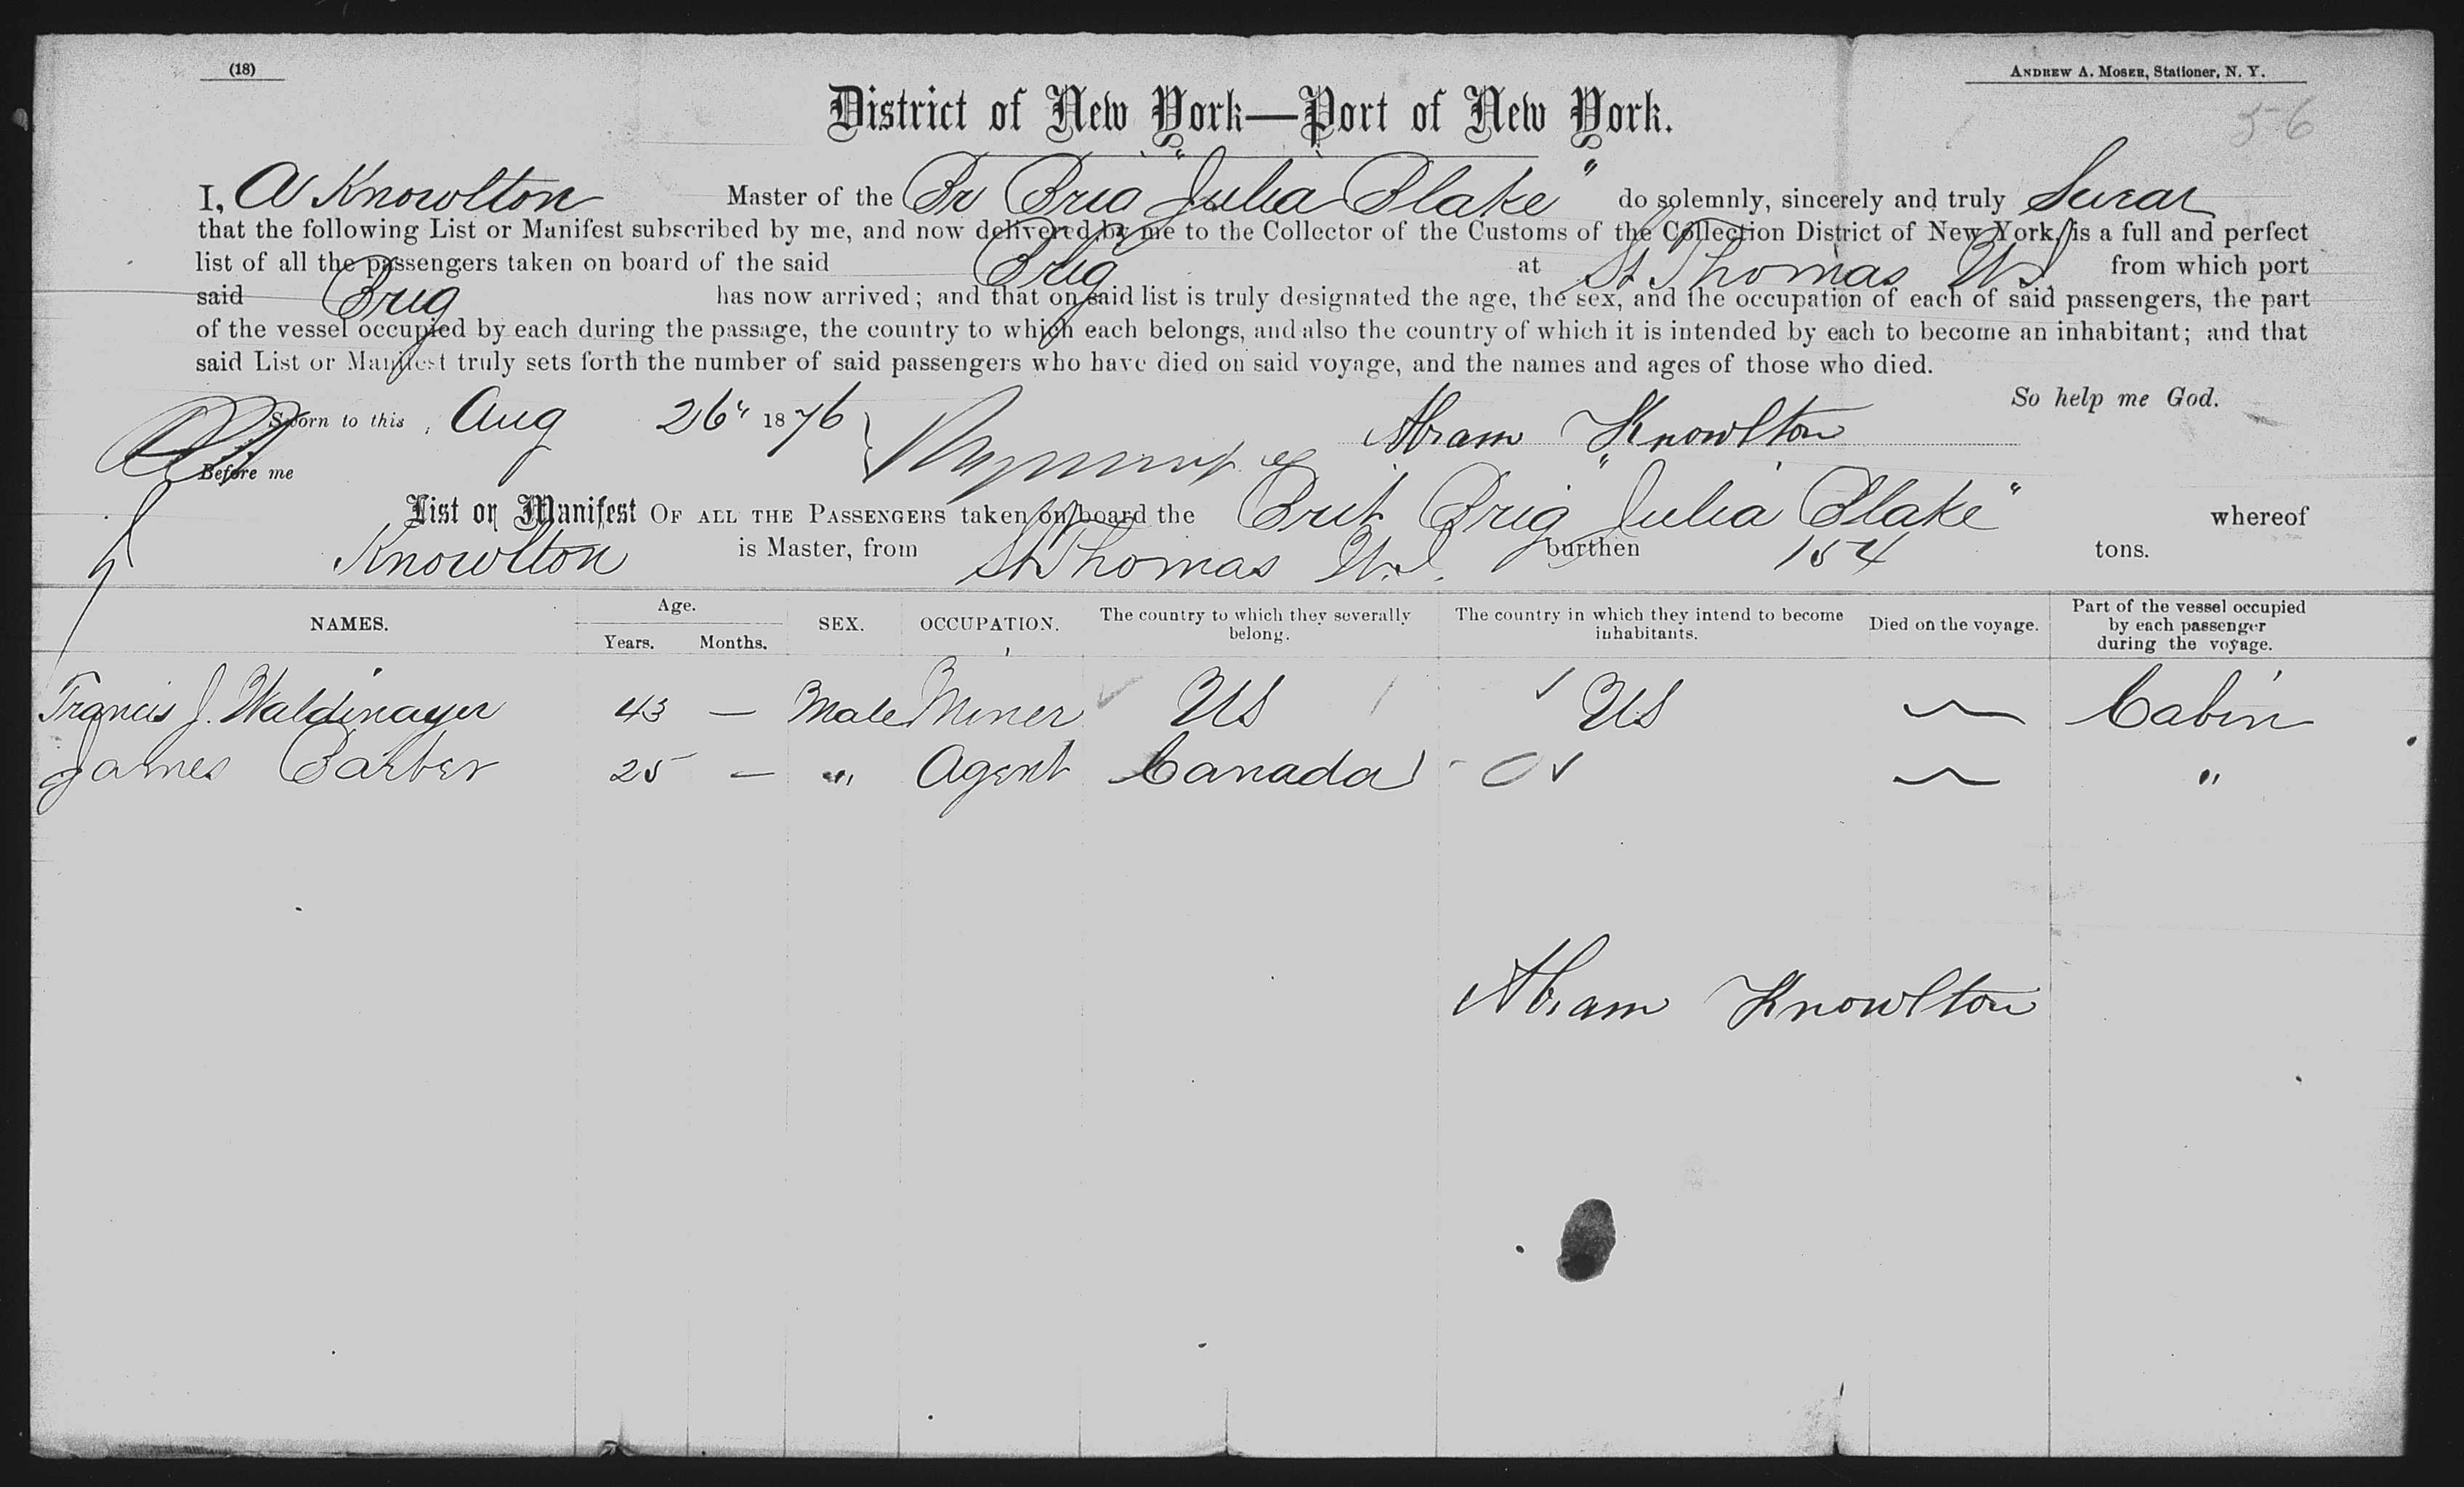 (18)
ANDREW A. MOSER, Stationer, N. Y.
56
District of New York—Port of New York.
I, A Knowlton Master of the Br Brig "Julia Blake" do solemnly, sincerely and truly Swear
that the following List or Manifest subscribed by me, and now delivered by me to the Collector of the Customs of the Collection District of New York, is a full and perfect
list of all the passengers taken on board of the said Brig at St Thomas W.I from which port
said Brig has now arrived; and that on said list is truly designated the age, the sex, and the occupation of each of said passengers, the part
of the vessel occupied by each during the passage, the country to which each belongs, and also the country of which it is intended by each to become an inhabitant; and that
said List or Manifest truly sets forth the number of said passengers who have died on said voyage, and the names and ages of those who died.
So help me God.
Sworn to this, Aug 26" 1876 Abram Knowlton
Before me
List or Manifest OF ALL THE PASSENGERS taken on board the Brit Brig "Julia Blake" whereof
Knowlton is Master, from St Thomas W.I. burthen 154 tons.
NAMES. Age. Years. Months. SEX. OCCUPATION. The country to which they severally belong. The country in which they intend to become inhabitants. Died on the voyage. Part of the vessel occupied by each passenger during the voyage.
Francis J. Waldmayer 43 — Male Miner US US — Cabin
James Barber 25 — " Agent Canada — "
Abram Knowlton